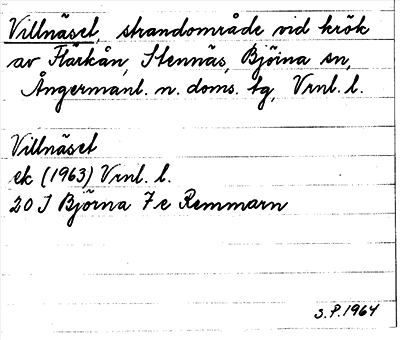 Villnäset, strandområde vid krök
av Flärkån, Stennäs, Björna sn,
Ångermanl. n. doms. tg, Vrnl. l.
Villnäset
ek (1963) Vrnl. l.
20 J Björna 7 e Remmarn
S.P. 1964